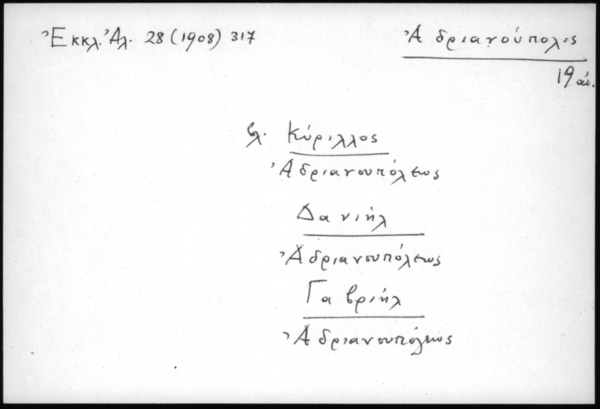 Ἐκκλ. Ἀλ. 28 (1908) 317
Ἀδριανούπολις
19 αἰ.
βλ. Κύριλλος
Ἀδριανουπόλεως
Δανιήλ
Ἀδριανουπόλεως
Γαβριήλ
Ἀδριανουπόλεως